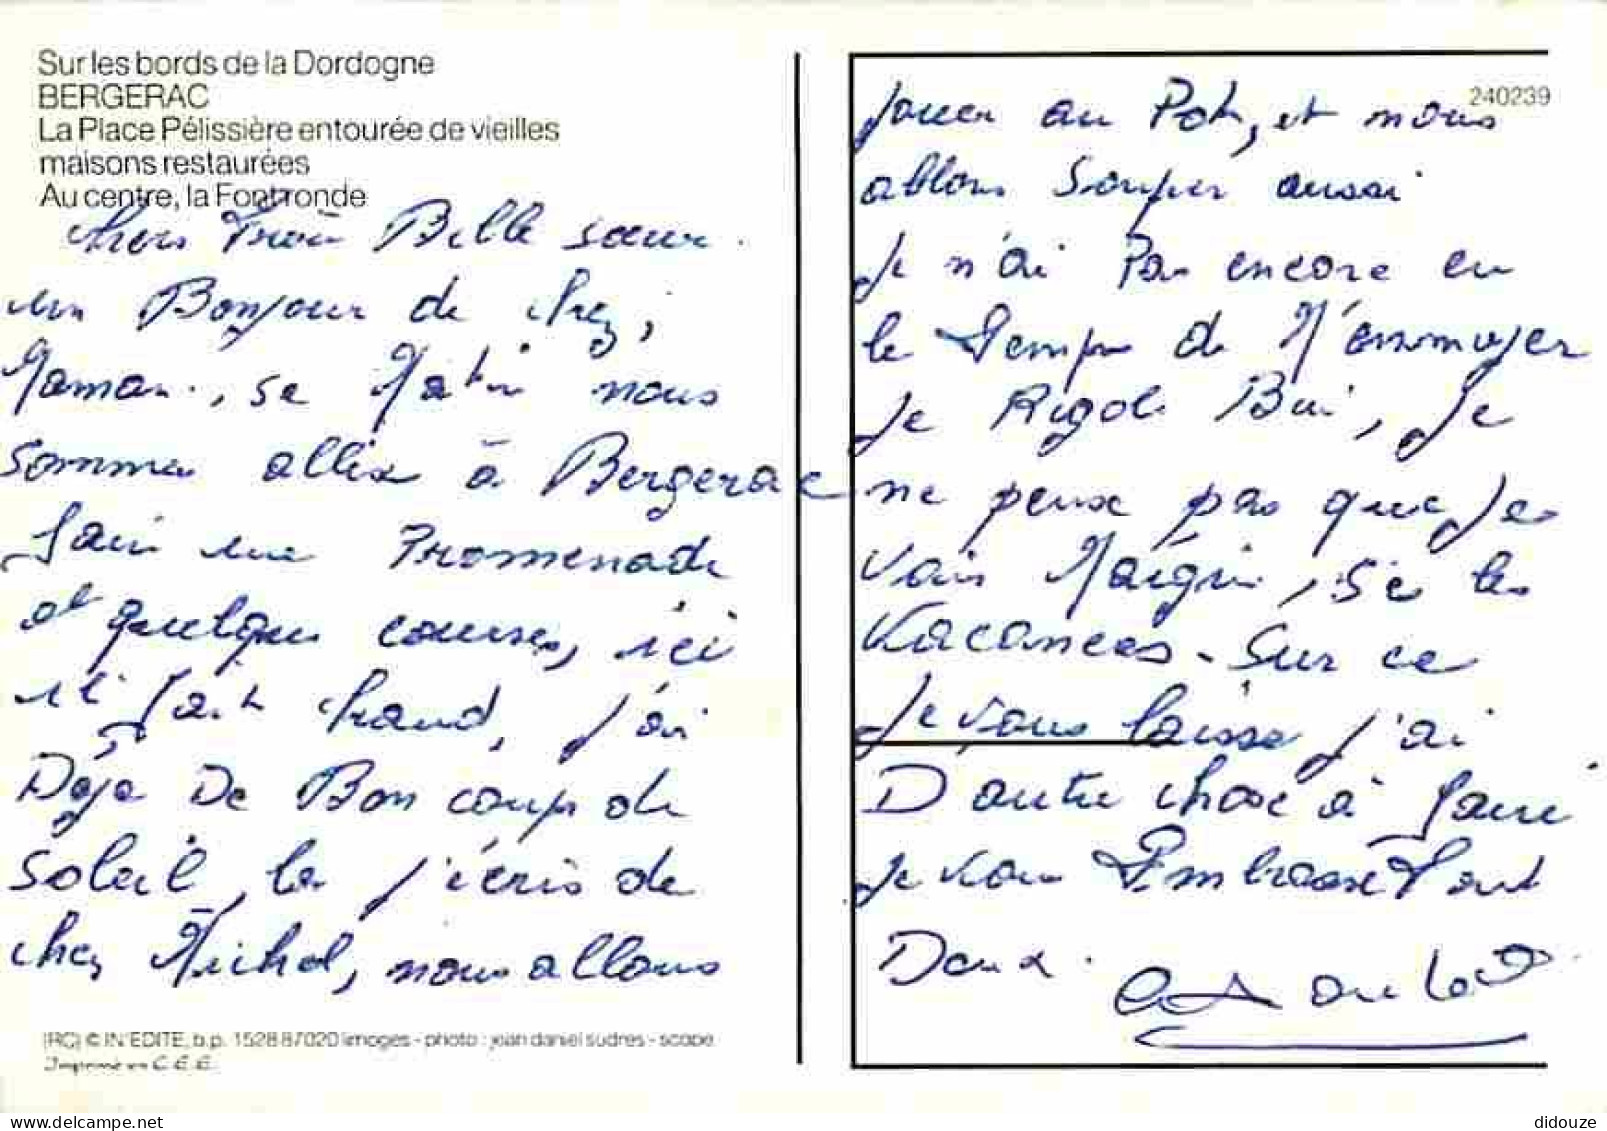 Sur les bords de la Dordogne
BERGERAC
La Place Pélissière entourée de vieilles
maisons restaurées
Au centre, la Font ronde
chers Belle sœur.
un Bonjour de chez,
Maman, se Matin nous
somme allez à Bergerac
fair une Promenade
et quelque courses, ici
il fait chaud, j'ai
Déja De Bon coup de
soleil, la j'écris de
chez Michel, nous allons
240239
jouer au Pok, et nous
allons Souper aussi
Je n'ai Pas encore eu
le Temps de M'ennuyer
Je Rigole Bien, Je
ne peux pas que Je
vais Maigrir, Ses les
Vacances. Sur ce
Je vous laisse j'ai
D'autre chose à faire
Je vous Embrasse Tout
Deux.
(RC) © IN'EDITE, b.p. 1528 87020 limoges - photo : jean daniel sudres - scope
Imprimé en C.E.E.
didouze